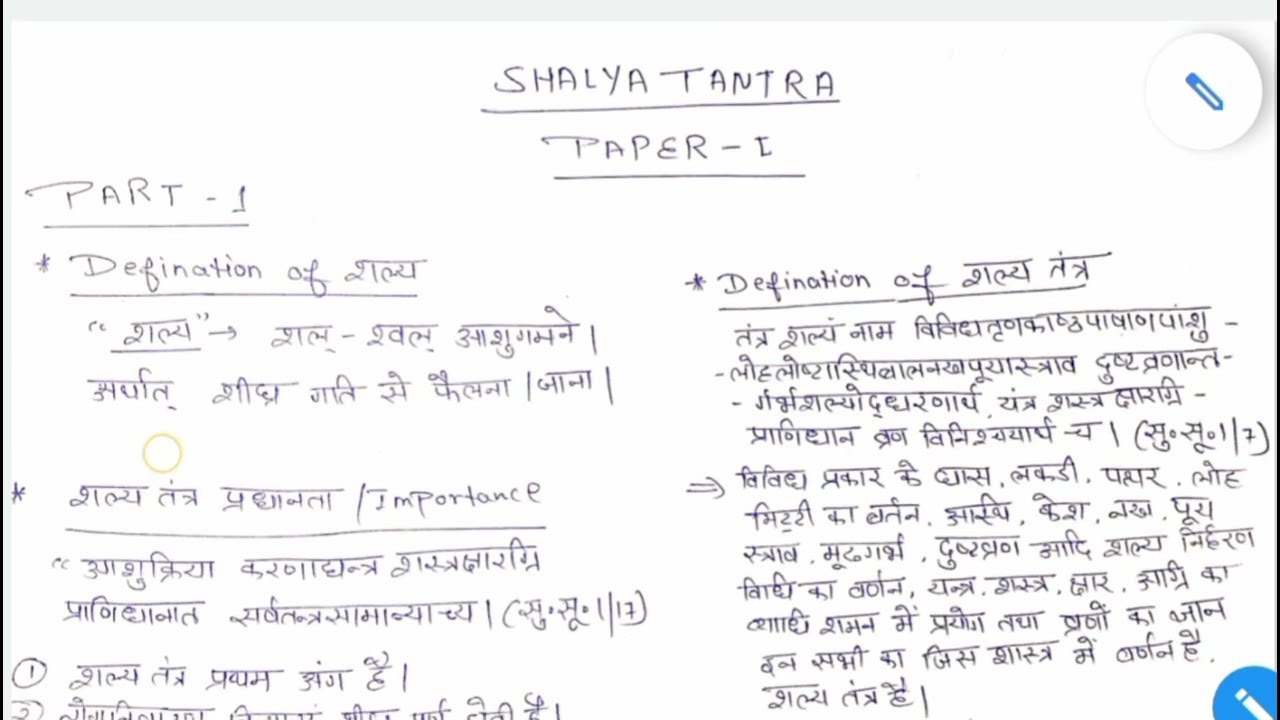 SHALYA TANTRA
PAPER - I
PART - 1
* Defination of शल्य
“शल्य” → शल् - श्वल् आशुगमने।
अर्थात् शीघ्र गति से फैलना / जाना।
* शल्य तंत्र प्रधानता / Importance
“आशुक्रिया करणाद्यन्त्र शस्त्रक्षाराग्नि
प्राणिधानात सर्वतन्त्रसामान्याच्च। (सु॰सू॰1/17)
① शल्य तंत्र प्रथम अंग है।
* Defination of शल्य तंत्र
तंत्र शल्यं नाम विविधतृणकाष्ठपाषाणपांशु -
- लोहलोष्टास्थिबालनखपूयास्त्राव दुष्टव्रणान्त -
- र्गर्भशल्योद्धरणार्थ यंत्र शस्त्र क्षाराग्नि -
प्राणिधान व्रण विनिश्चयार्थ च। (सु॰सू॰1/7)
⇒ विविध प्रकार के घास, लकडी, पत्थर, लोह
मिट्टी का बर्तन, अस्थि, केश, नख, पूय
स्त्राव, मूढगर्भ, दुष्टव्रण आदि शल्य निर्हरण
विधि का वर्णन, यन्त्र, शस्त्र, क्षार, अग्नि का
व्याधि शमन में प्रयोग तथा व्रणों का ज्ञान
इन सभी का जिस शास्त्र में वर्णन है,
शल्य तंत्र है।